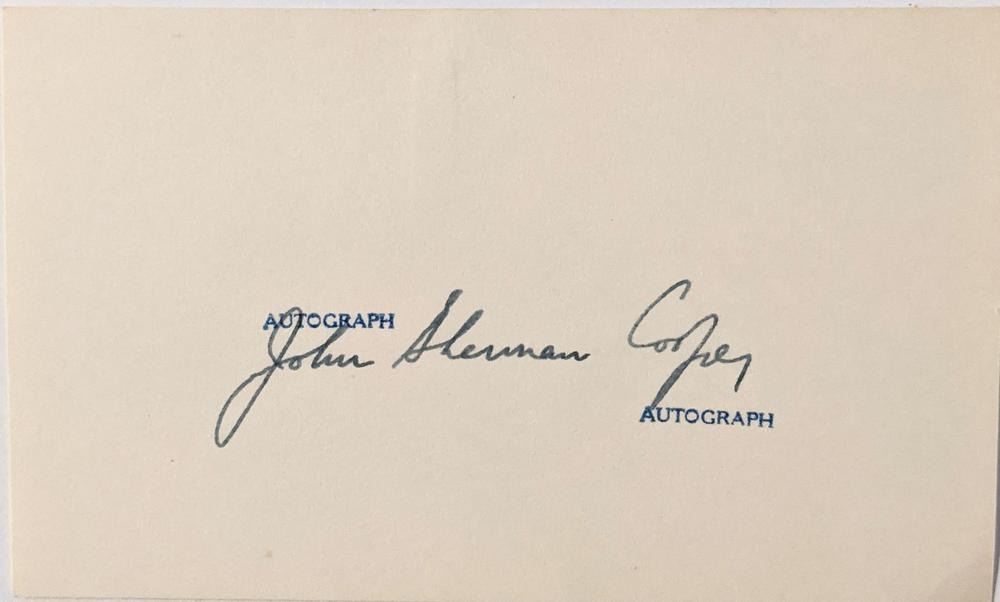 AUTOGRAPH
John Sherman Cooper
AUTOGRAPH